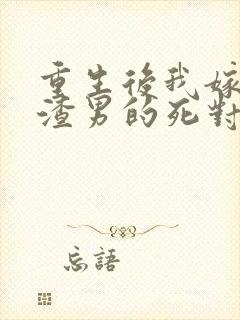 重生後我嫁
渣男的死對
忘語